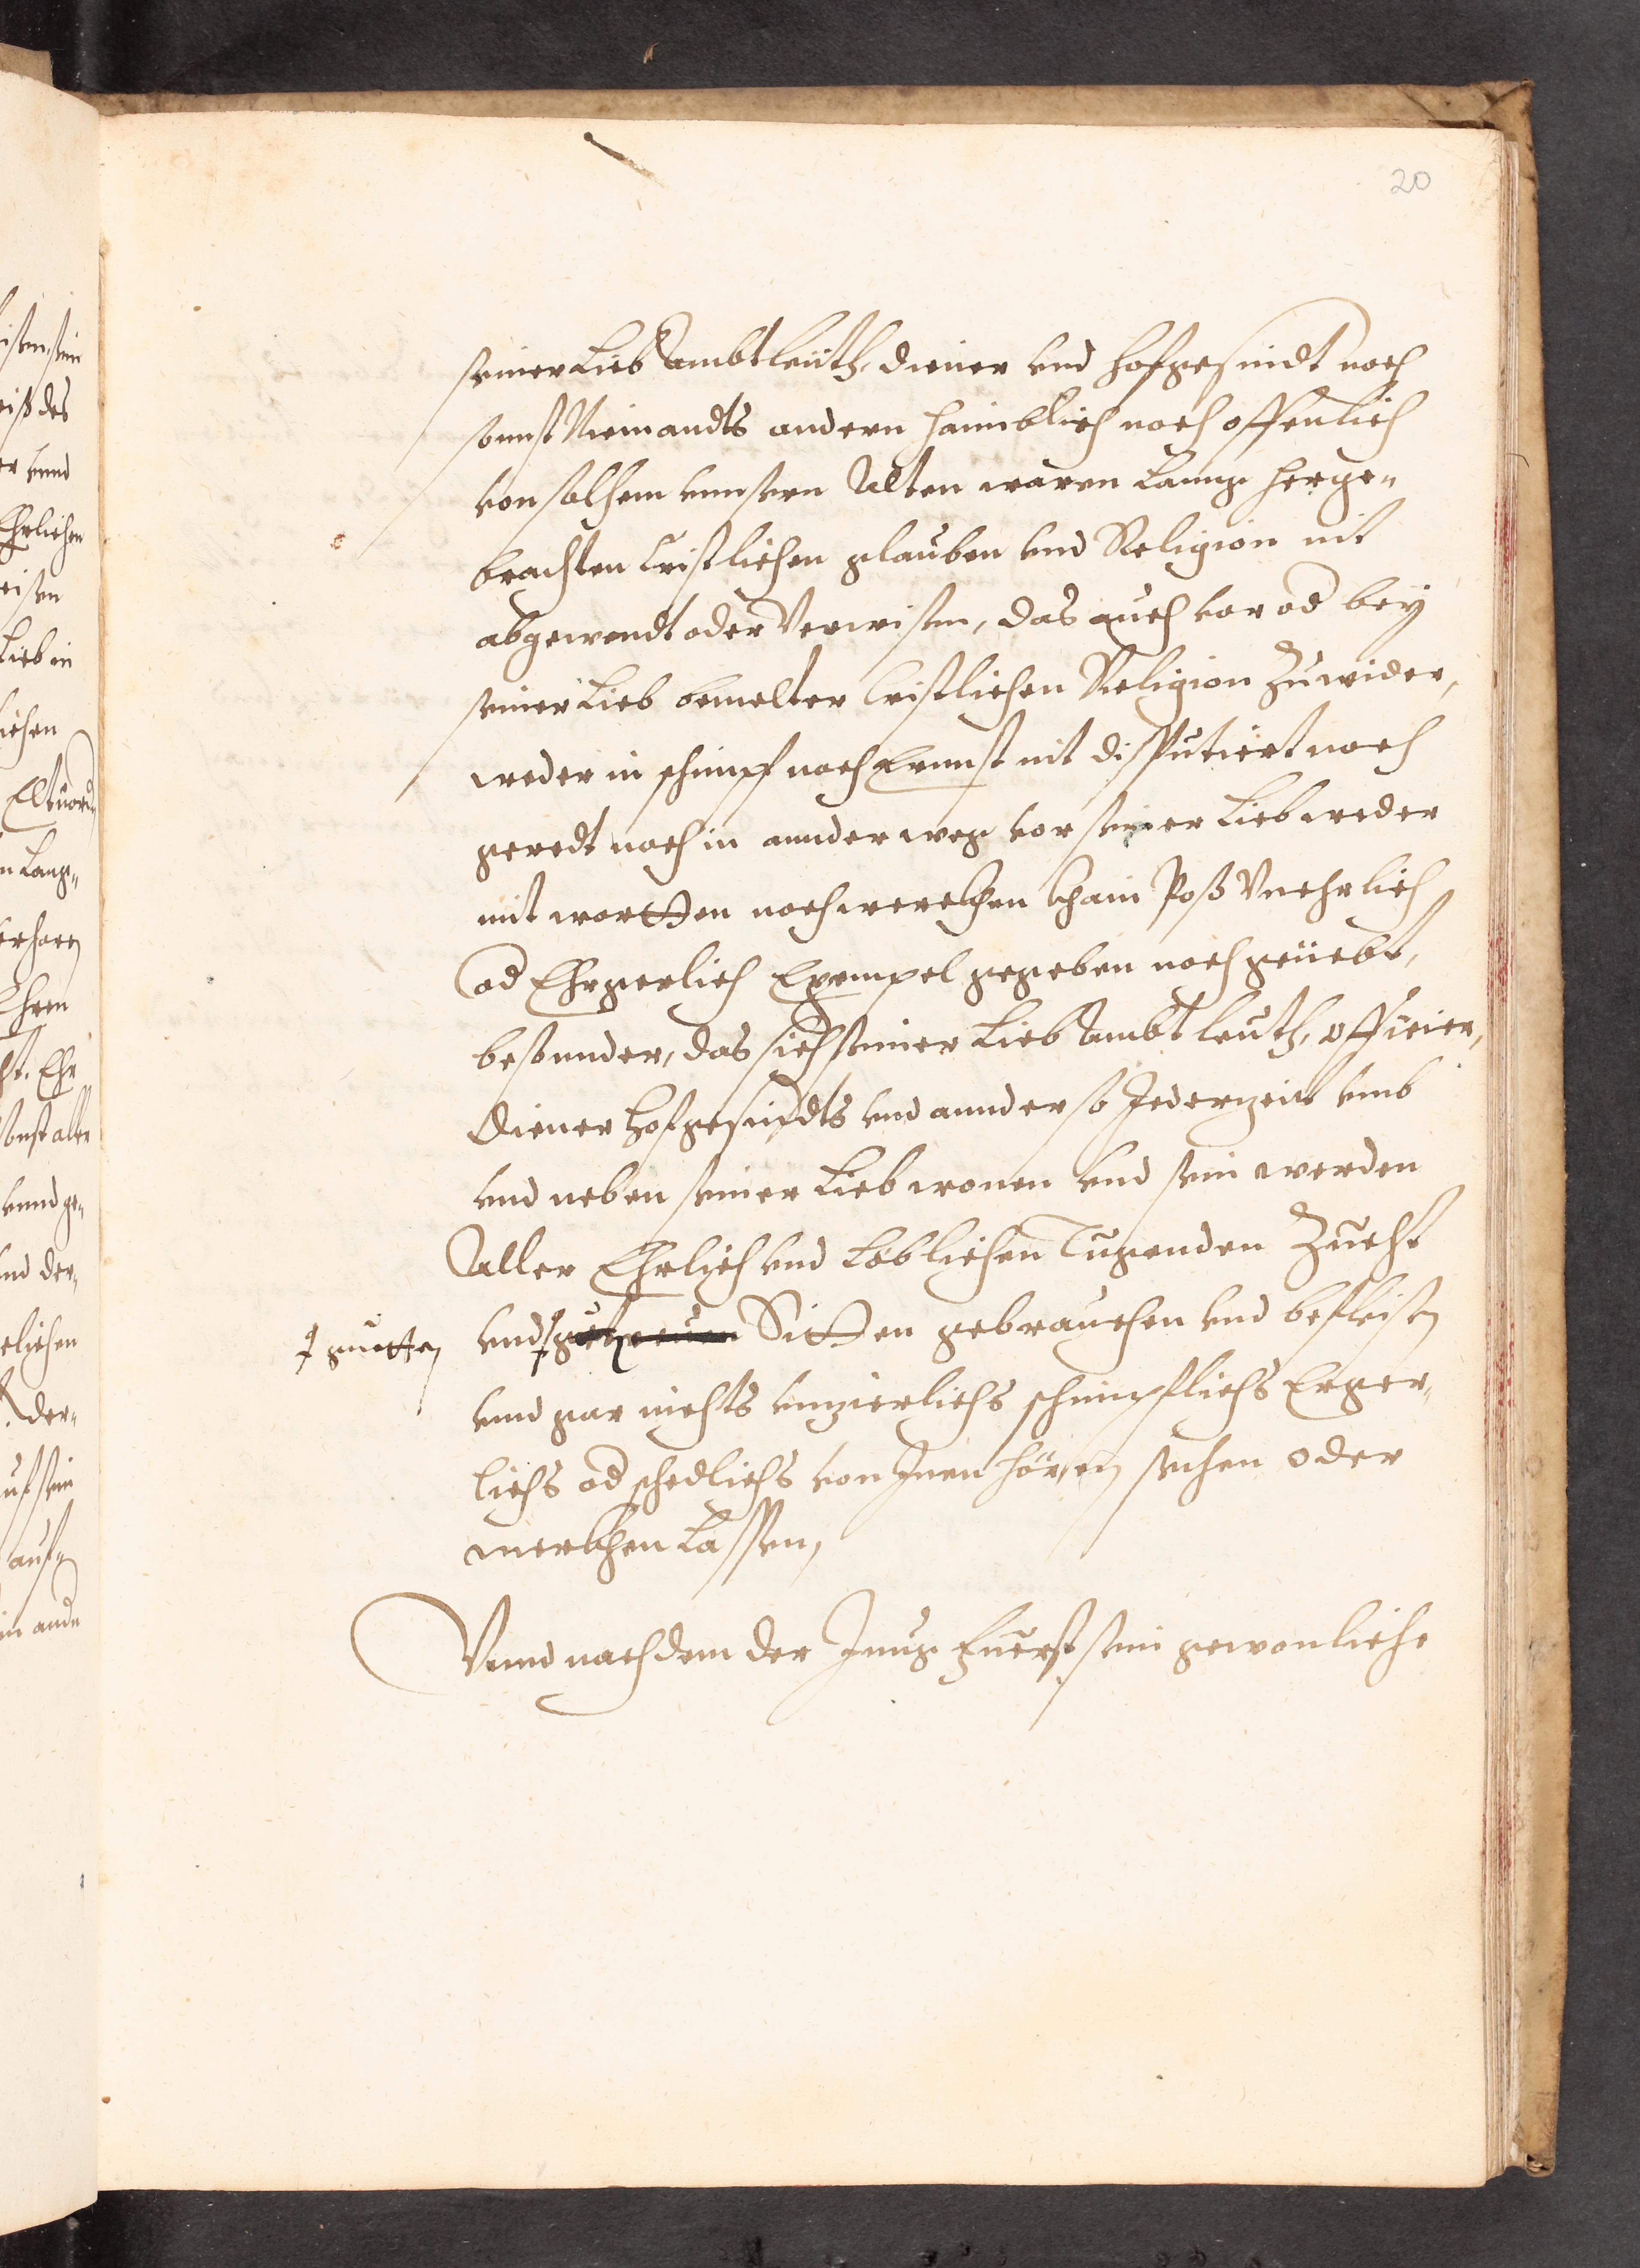 20
seiner Lieb Ambtleüth, diener vnd hofgesindt noch
sonnst Niemandts andern haimblich noch offenlich
von solhem vnnsern Alten waren Lanng herge-
brachten Cristlichen glauben vnd Religion nit
abgewendt oder Verwisen, das auch vor od bey
seiner Lieb bemelter Cristlichen Religion Zuwider,
weder in schimpf noch Ernnst nit disputiert noch
geredt noch in annder weg vor seiner Lieb weder
mit wortten noch werckhen khain Poß Vnehrlich
od Ehrgerlich Exempel gegeben noch geüebt,
besonnder, das sich seiner Lieb Ambtleuth, officier,
Diener Hofgesindts vnd annder so Jederzeit vmb
vnd neben seiner Lieb wonen vnd sein werden
Aller Ehrlich vnd Löblichen Tugenden Zucht
vnd Sitten gebrauchen vnd befleisen
guetten
vnnd gar nichts vnzierlichs schimpflichs Erger-
lichs od schedlichs von Jnen hören sechen oder
merckhen Lassen,
Vnnd nachdem der Jung Fürst sein gewonliche
istlen, sein
eiß des
er vnnd
Ehrlichen
eisen
Lieb in
ichen
n Lang-
Ehren
sonst aller
vnnd ge-
vnd der-
elichen
der-
uf sein
auf-
in ande